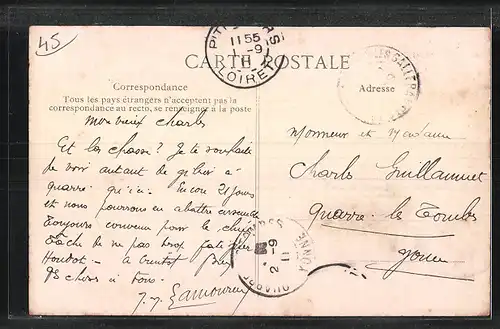 45
CARTE POSTALE
PITHIVIERS
11 55
1 - 9
11
LOIRET
Correspondance
Tous les pays étrangers n'acceptent pas la
correspondance au recto, se renseigner à la poste
Adresse
mon vieux Charles
Et la chasse ? Je te souhaite
de voir autant de gibier à
quarré qu'ici. Encore 21 jours
et nous pourrons en abattre ensemble
Toujours convenu pour le chien
Tâche de ne pas trop fatiguer
à bientôt
à tous.
J. Lamoureux
Monsieur et Madame
Charles Guillaumet
Quarré-les-Tombes
Yonne
QUARRÉ
2 - 9
11
YONNE